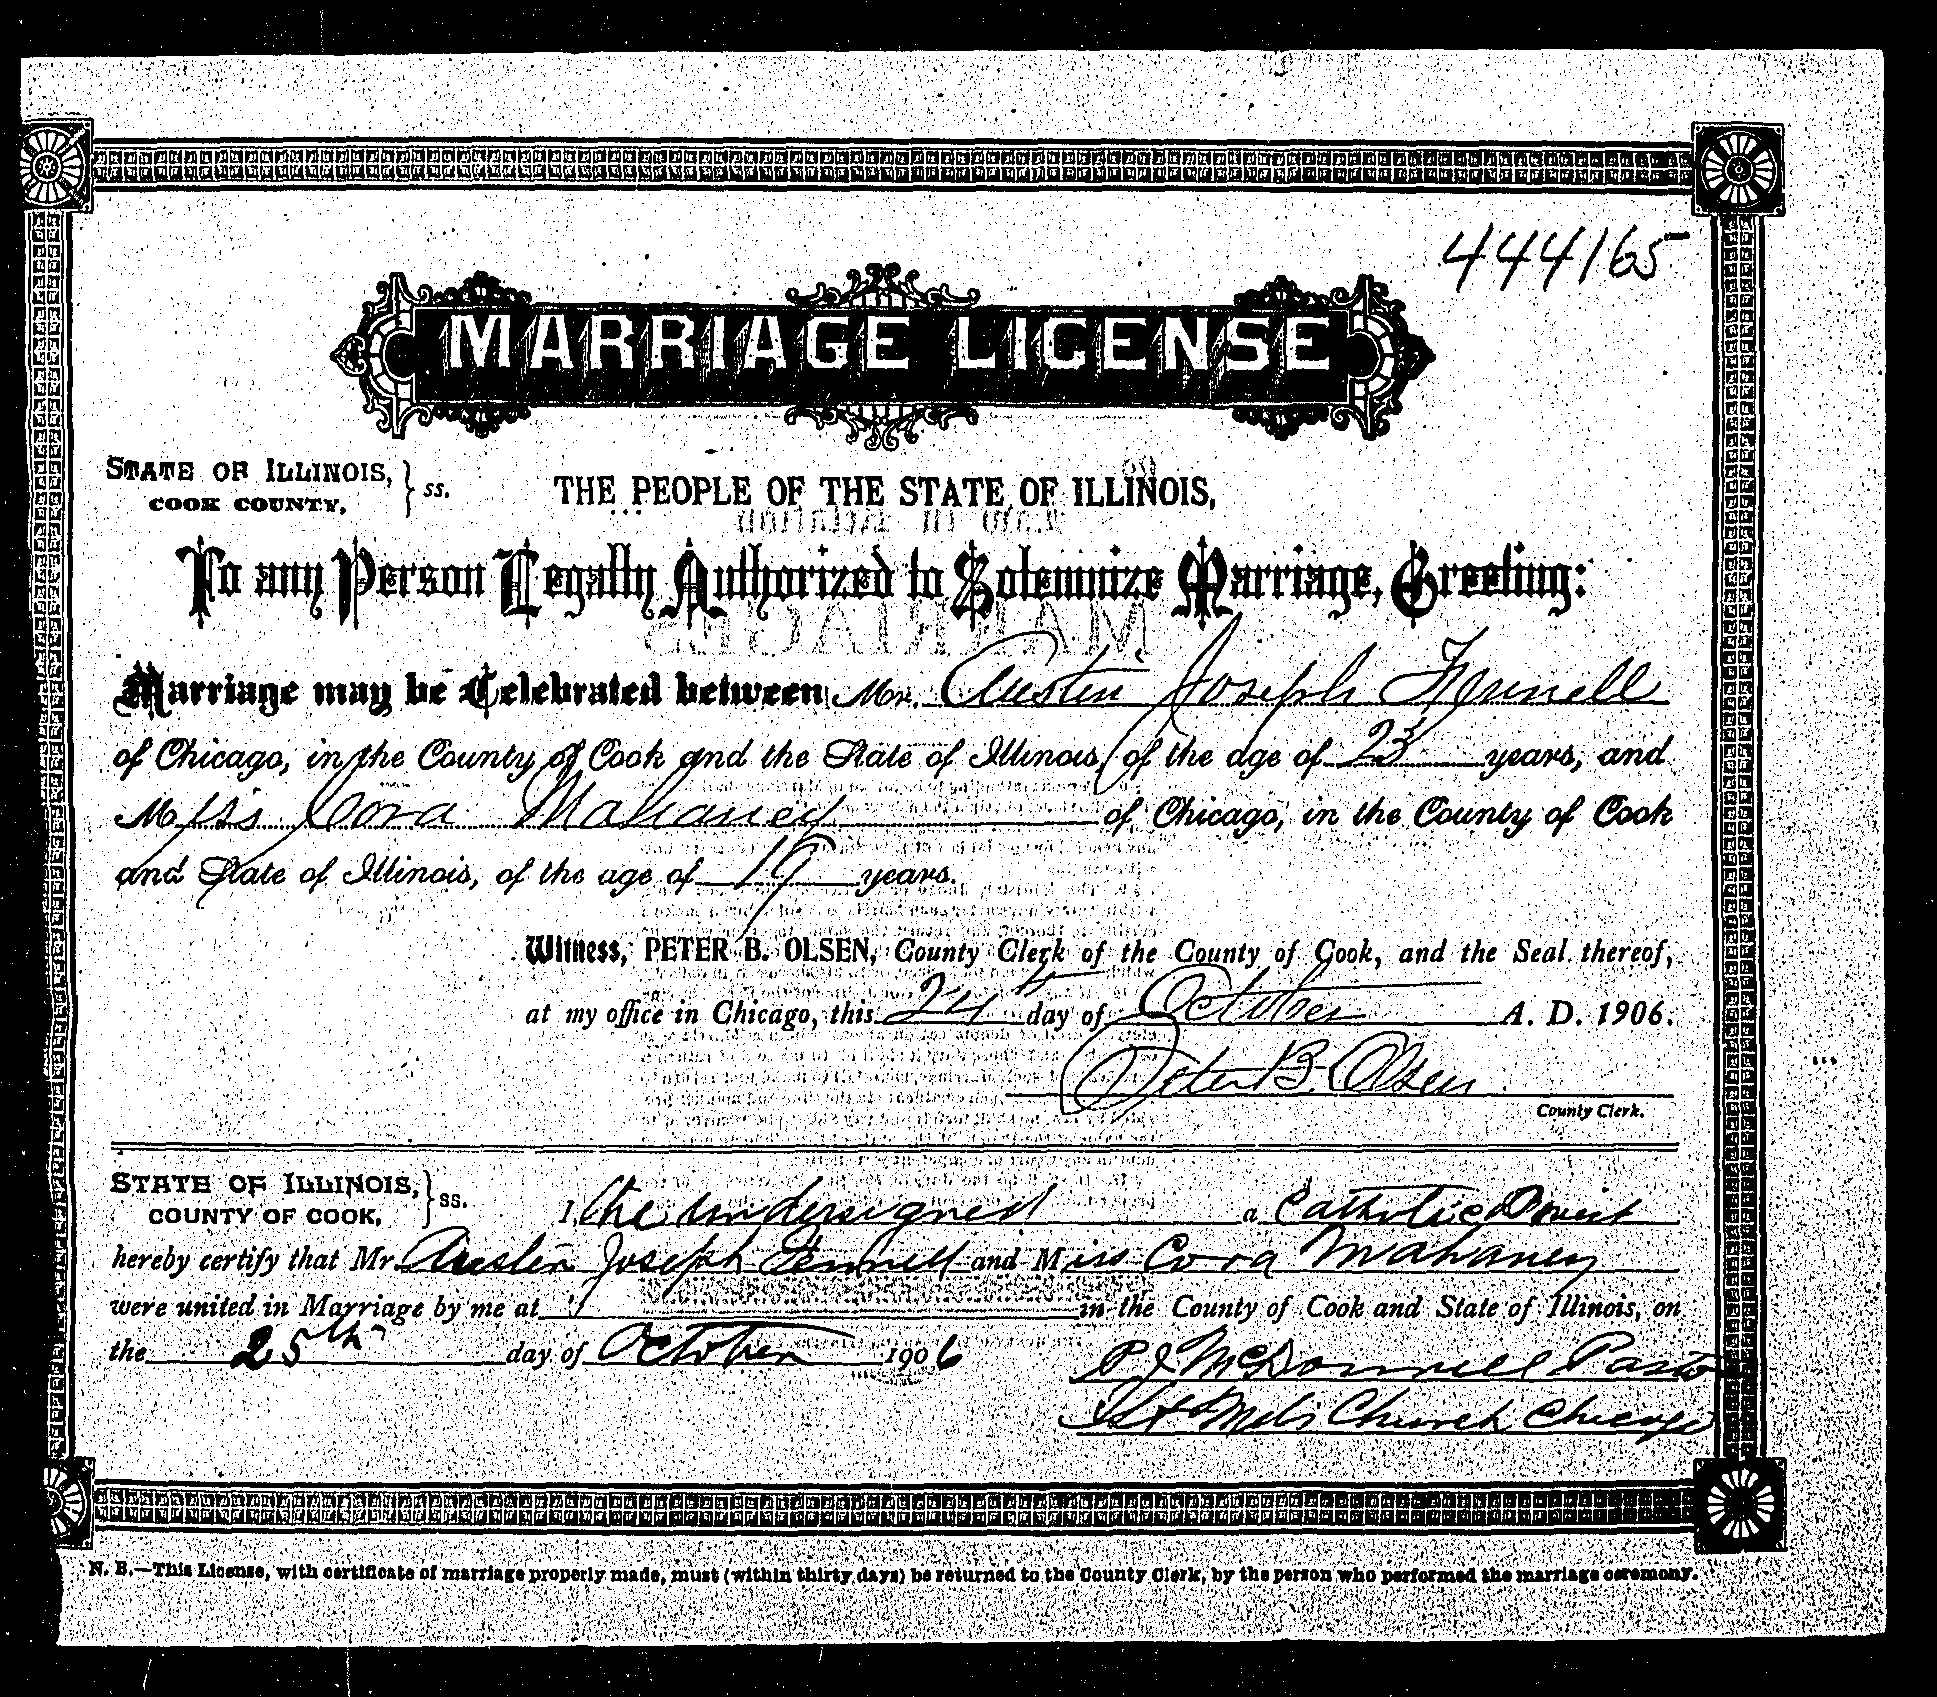 444165
MARRIAGE LICENSE
STATE OF ILLINOIS, } ss.
COOK COUNTY.
THE PEOPLE OF THE STATE OF ILLINOIS,
To any Person Legally Authorized to Solemnize Marriage, Greeting:
Marriage may be Celebrated between Mr. Austin Joseph Fennell
of Chicago, in the County of Cook and the State of Illinois, of the age of 23 years, and
Miss Cora Mahaney of Chicago, in the County of Cook
and State of Illinois, of the age of 19 years.
Witness, PETER B. OLSEN, County Clerk of the County of Cook, and the Seal thereof,
at my office in Chicago, this 24th day of October A. D. 1906.
Peter B. Olsen
County Clerk.
STATE OF ILLINOIS, } ss.
COUNTY OF COOK,
I the undersigned a Catholic Priest
hereby certify that Mr. Austin Joseph Fennell and Miss Cora Mahaney
were united in Marriage by me at in the County of Cook and State of Illinois, on
the 25th day of October 1906
P J McDonnell Pastor
St Mels Church Chicago
N. B.—This License, with certificate of marriage properly made, must (within thirty days) be returned to the County Clerk, by the person who performed the marriage ceremony.